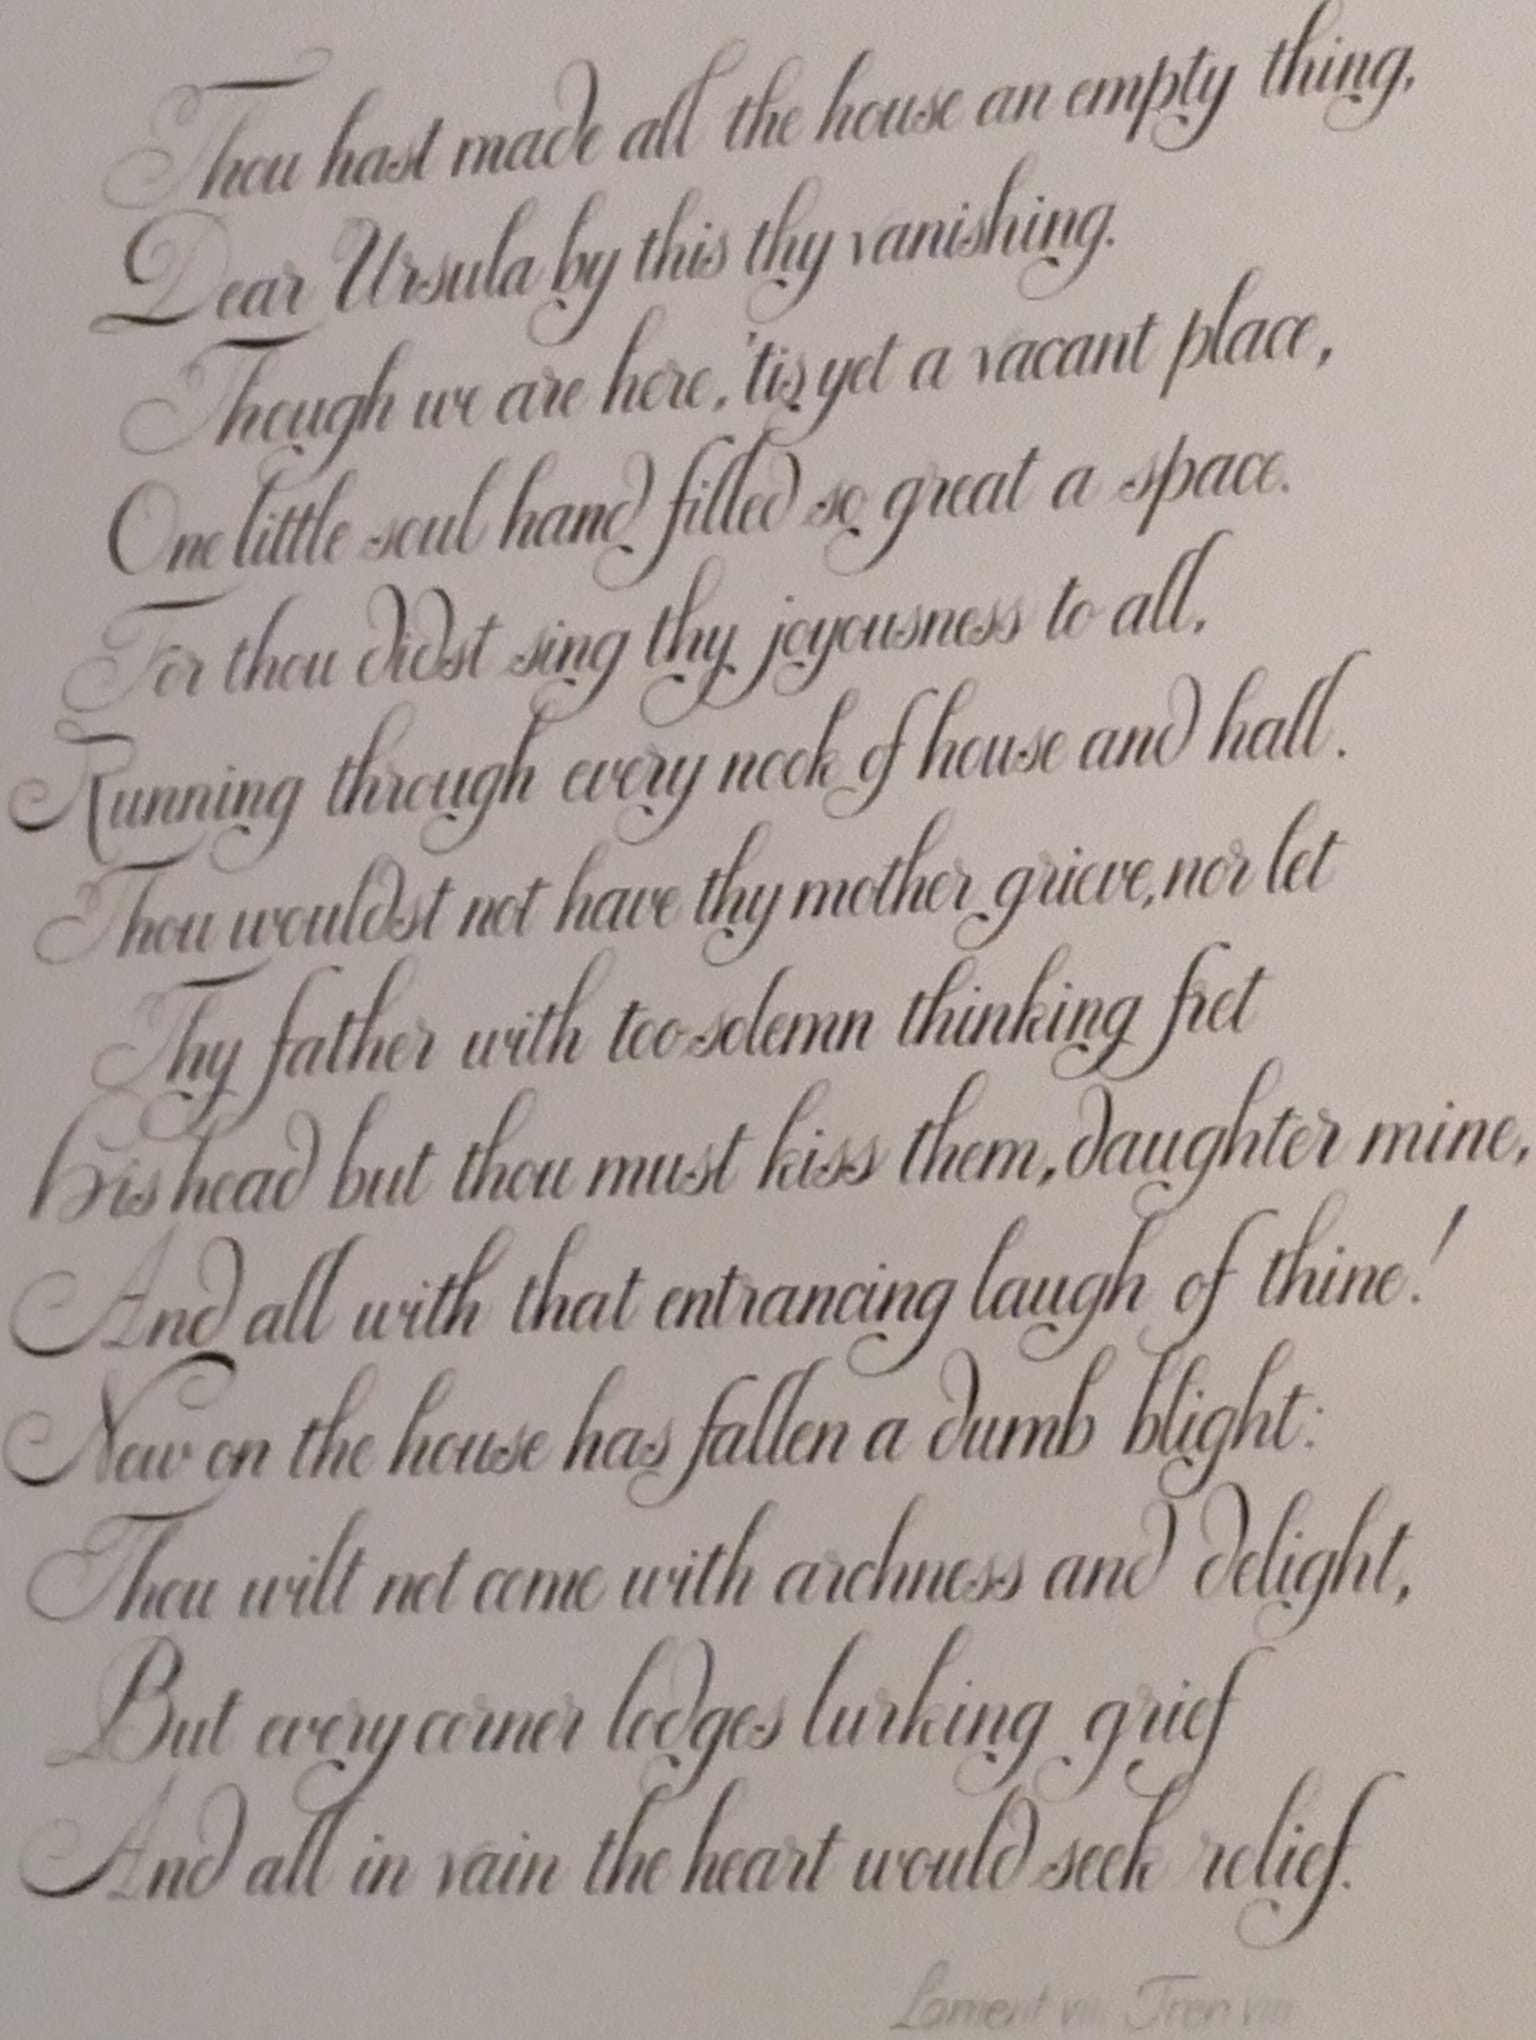 Thou hast made all the house an empty thing,
Dear Ursula by this thy vanishing.
Though we are here, 'tis yet a vacant place,
One little soul hand filled so great a space.
For thou didst sing thy joyousness to all,
Running through every nook of house and hall.
Thou wouldst not have thy mother grieve, nor let
Thy father with too solemn thinking fret
His head but thou must kiss them, daughter mine,
And all with that entrancing laugh of thine!
Now on the house has fallen a dumb blight:
Thou wilt not come with archness and delight,
But every corner lodges lurking grief
And all in vain the heart would seek relief.
Lament viii Tren viii